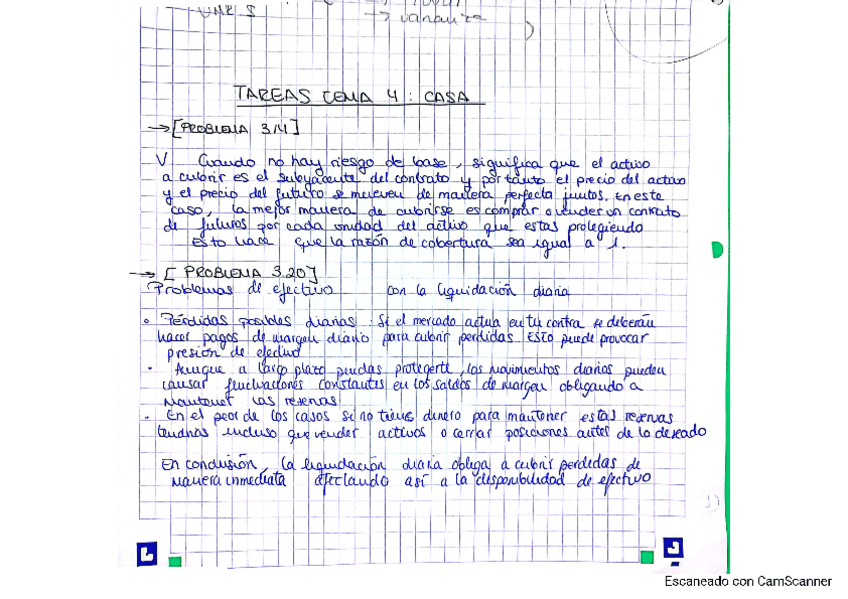 → varianza
TAREAS TEMA 4 : CASA
→ [PROBLEMA 3.14]
V Cuando no hay riesgo de base, significa que el activo
a cubrir es el subyacente del contrato y por tanto el precio del activo
y el precio del futuro se mueven de manera perfecta juntos. En este
caso, la mejor manera de cubrirse es comprar o vender un contrato
de futuros por cada unidad del activo que estas protegiendo
Esto hace que la razón de cobertura sea igual a 1.
→ [PROBLEMA 3.20]
Problemas de efectivo con la liquidación diaria
• Pérdidas posibles diarias : Si el mercado actua en tu contra se deberán
hacer pagos de margen diario para cubrir perdidas Esto puede provocar
presión de efectivo
• Aunque a largo plazo puedas protegerte, los movimientos diarios pueden
causar fluctuaciones constantes en los saldos de margen obligando a
mantener las reservas
• En el peor de los casos si no tienes dinero para mantener estas reservas
tendrias incluso que vender activos o cerrar posiciones antes de lo deseado
En conclusión, la liquidación diaria obliga a cubrir perdidas de
manera inmediata afectando así a la disponibilidad de efectivo
Escaneado con CamScanner